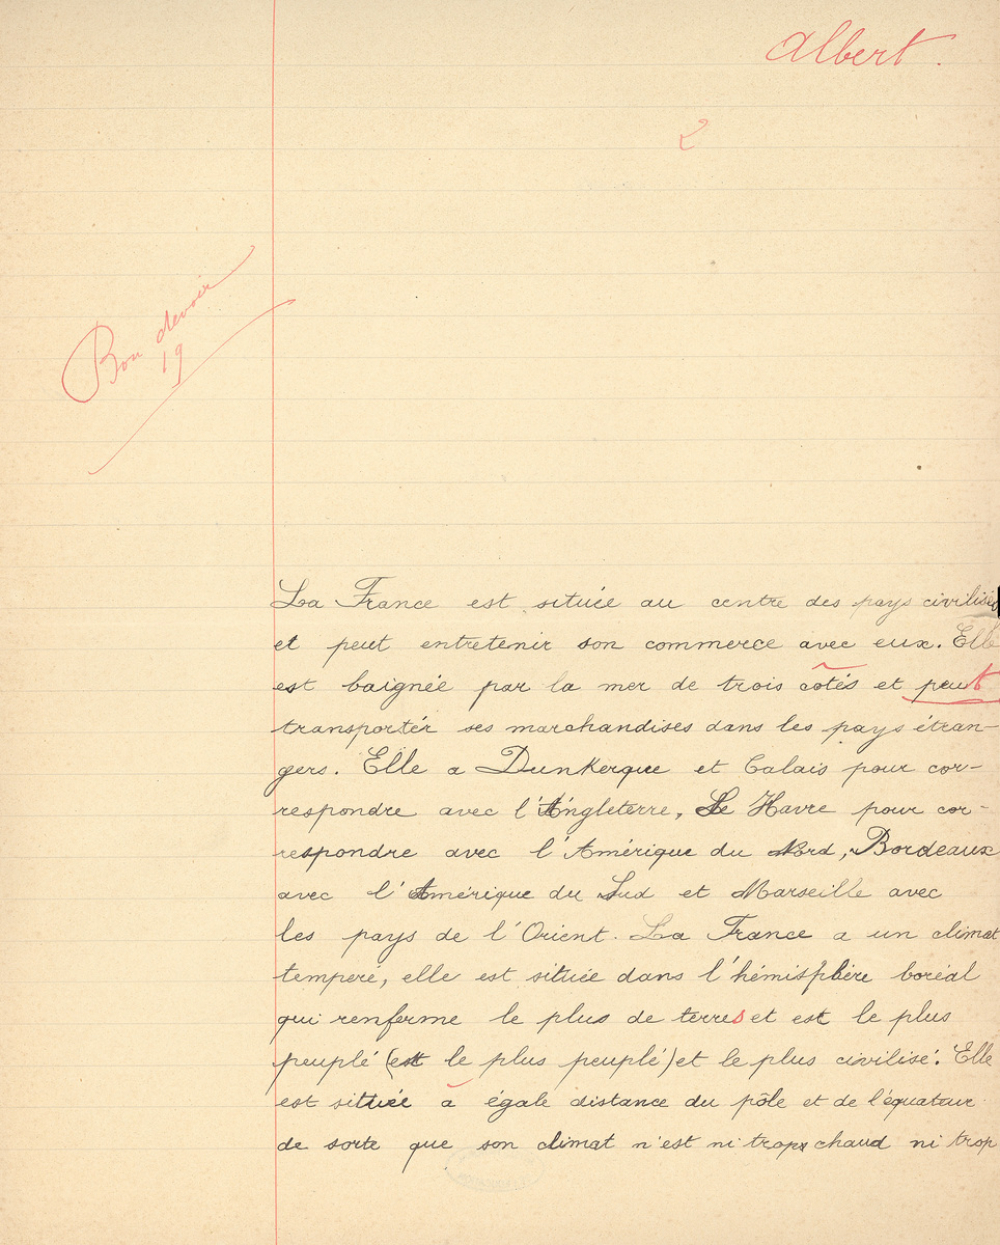 Albert.
2
Bon devoir
19
La France est située au centre des pays civilisés
et peut entretenir son commerce avec eux. Elle
est baignée par la mer de trois côtés et peut
transportér ses marchandises dans les pays étran-
gers. Elle a Dunkerque et Calais pour cor-
respondre avec l'Angleterre, Le Havre pour cor-
respondre avec l'Amérique du Nord, Bordeaux
avec l'Amérique du Sud et Marseille avec
les pays de l'Orient. La France a un climat
temperé, elle est située dans l'hémisphère boréal
qui renferme le plus de terres et est le plus
peuplé (est le plus peuplé) et le plus civilisé. Elle
est située à égale distance du pôle et de l'équateur
de sorte que son climat n'est ni trop chaud ni trop